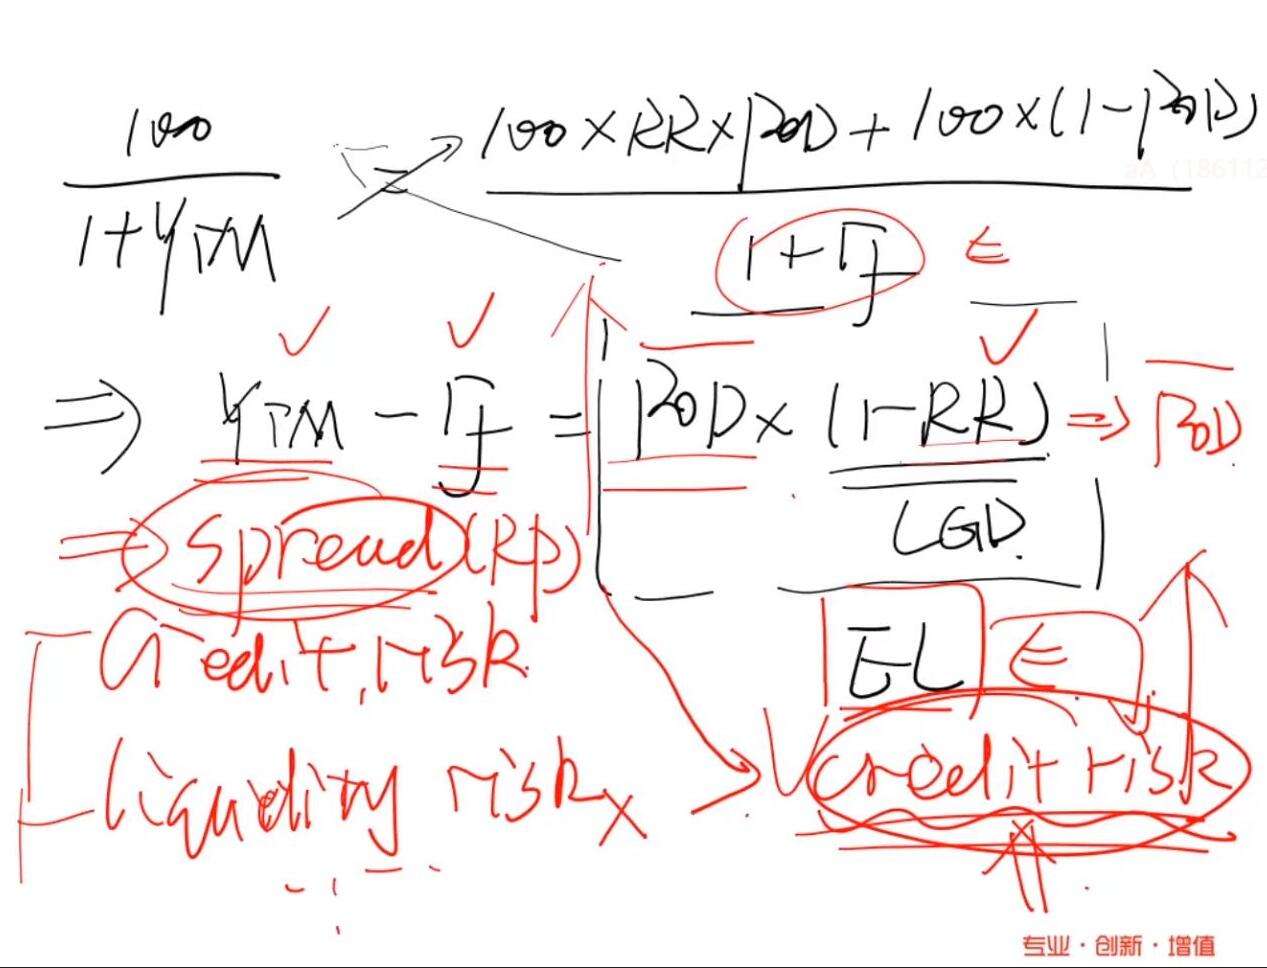 100 / 1+YTM = 100×RR×POD + 100×(1-POD) / 1+rf
⇒ YTM - rf = POD × (1-RR) ⇒ POD
LGD
⇒ spread (RP)
credit risk
EL
liquidity risk ×
credit risk
专业·创新·增值